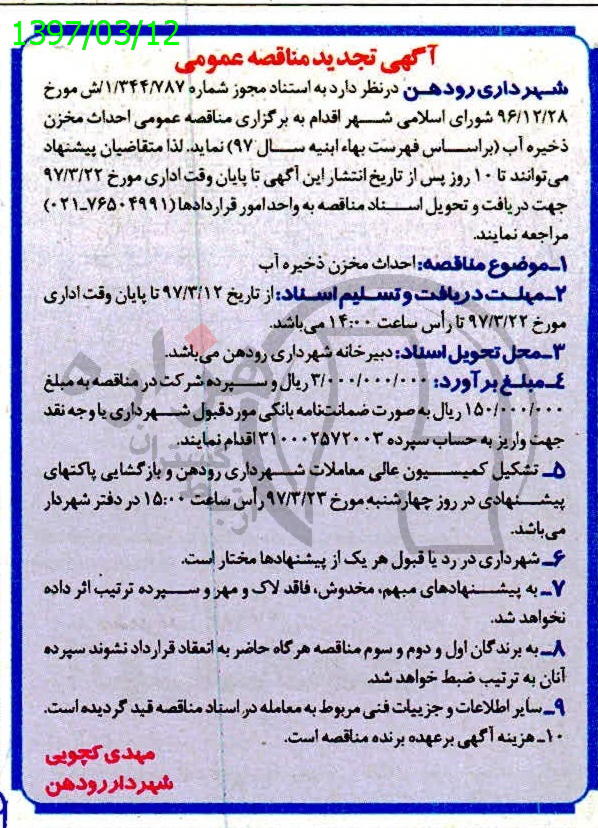 1397/03/12
آگهی تجدید مناقصه عمومی
شهرداری رودهن درنظر دارد به استناد مجوز شماره ۱/۳۴۴/۷۸۷/ش مورخ
۹۶/۱۲/۲۸ شورای اسلامی شهر اقدام به برگزاری مناقصه عمومی احداث مخزن
ذخیره آب (براساس فهرست بهاء ابنیه سال ۹۷) نماید. لذا متقاضیان پیشنهاد
می‌توانند تا ۱۰ روز پس از تاریخ انتشار این آگهی تا پایان وقت اداری مورخ ۹۷/۳/۲۲
جهت دریافت و تحویل اسناد مناقصه به واحد امور قراردادها (۷۶۵۰۴۹۹۱-۰۲۱)
مراجعه نمایند.
۱ـ موضوع مناقصه: احداث مخزن ذخیره آب
۲ـ مهلت دریافت و تسلیم اسناد: از تاریخ ۹۷/۳/۱۲ تا پایان وقت اداری
مورخ ۹۷/۳/۲۲ تا رأس ساعت ۱۴:۰۰ می‌باشد.
۳ـ محل تحویل اسناد: دبیرخانه شهرداری رودهن می‌باشد.
٤ـ مبلغ برآورد: ۳/۰۰۰/۰۰۰/۰۰۰ ریال و سپرده شرکت در مناقصه به مبلغ
۱۵۰/۰۰۰/۰۰۰ ریال به صورت ضمانت‌نامه بانکی مورد قبول شهرداری یا وجه نقد
جهت واریز به حساب سپرده ۳۱۰۰۰۲۵۷۲۰۰۳ اقدام نمایند.
۵ـ تشکیل کمیسیون عالی معاملات شهرداری رودهن و بازگشایی پاکتهای
پیشنهادی در روز چهارشنبه مورخ ۹۷/۳/۲۳ رأس ساعت ۱۵:۰۰ در دفتر شهردار
می‌باشد.
۶ـ شهرداری در رد یا قبول هر یک از پیشنهادها مختار است.
۷ـ به پیشنهادهای مبهم، مخدوش، فاقد لاک و مهر و سپرده ترتیب اثر داده
نخواهد شد.
۸ـ به برندگان اول و دوم و سوم مناقصه هرگاه حاضر به انعقاد قرارداد نشوند سپرده
آنان به ترتیب ضبط خواهد شد.
۹ـ سایر اطلاعات و جزییات فنی مربوط به معامله در اسناد مناقصه قید گردیده است.
۱۰ـ هزینه آگهی برعهده برنده مناقصه است.
مهدی کچویی
شهردار رودهن